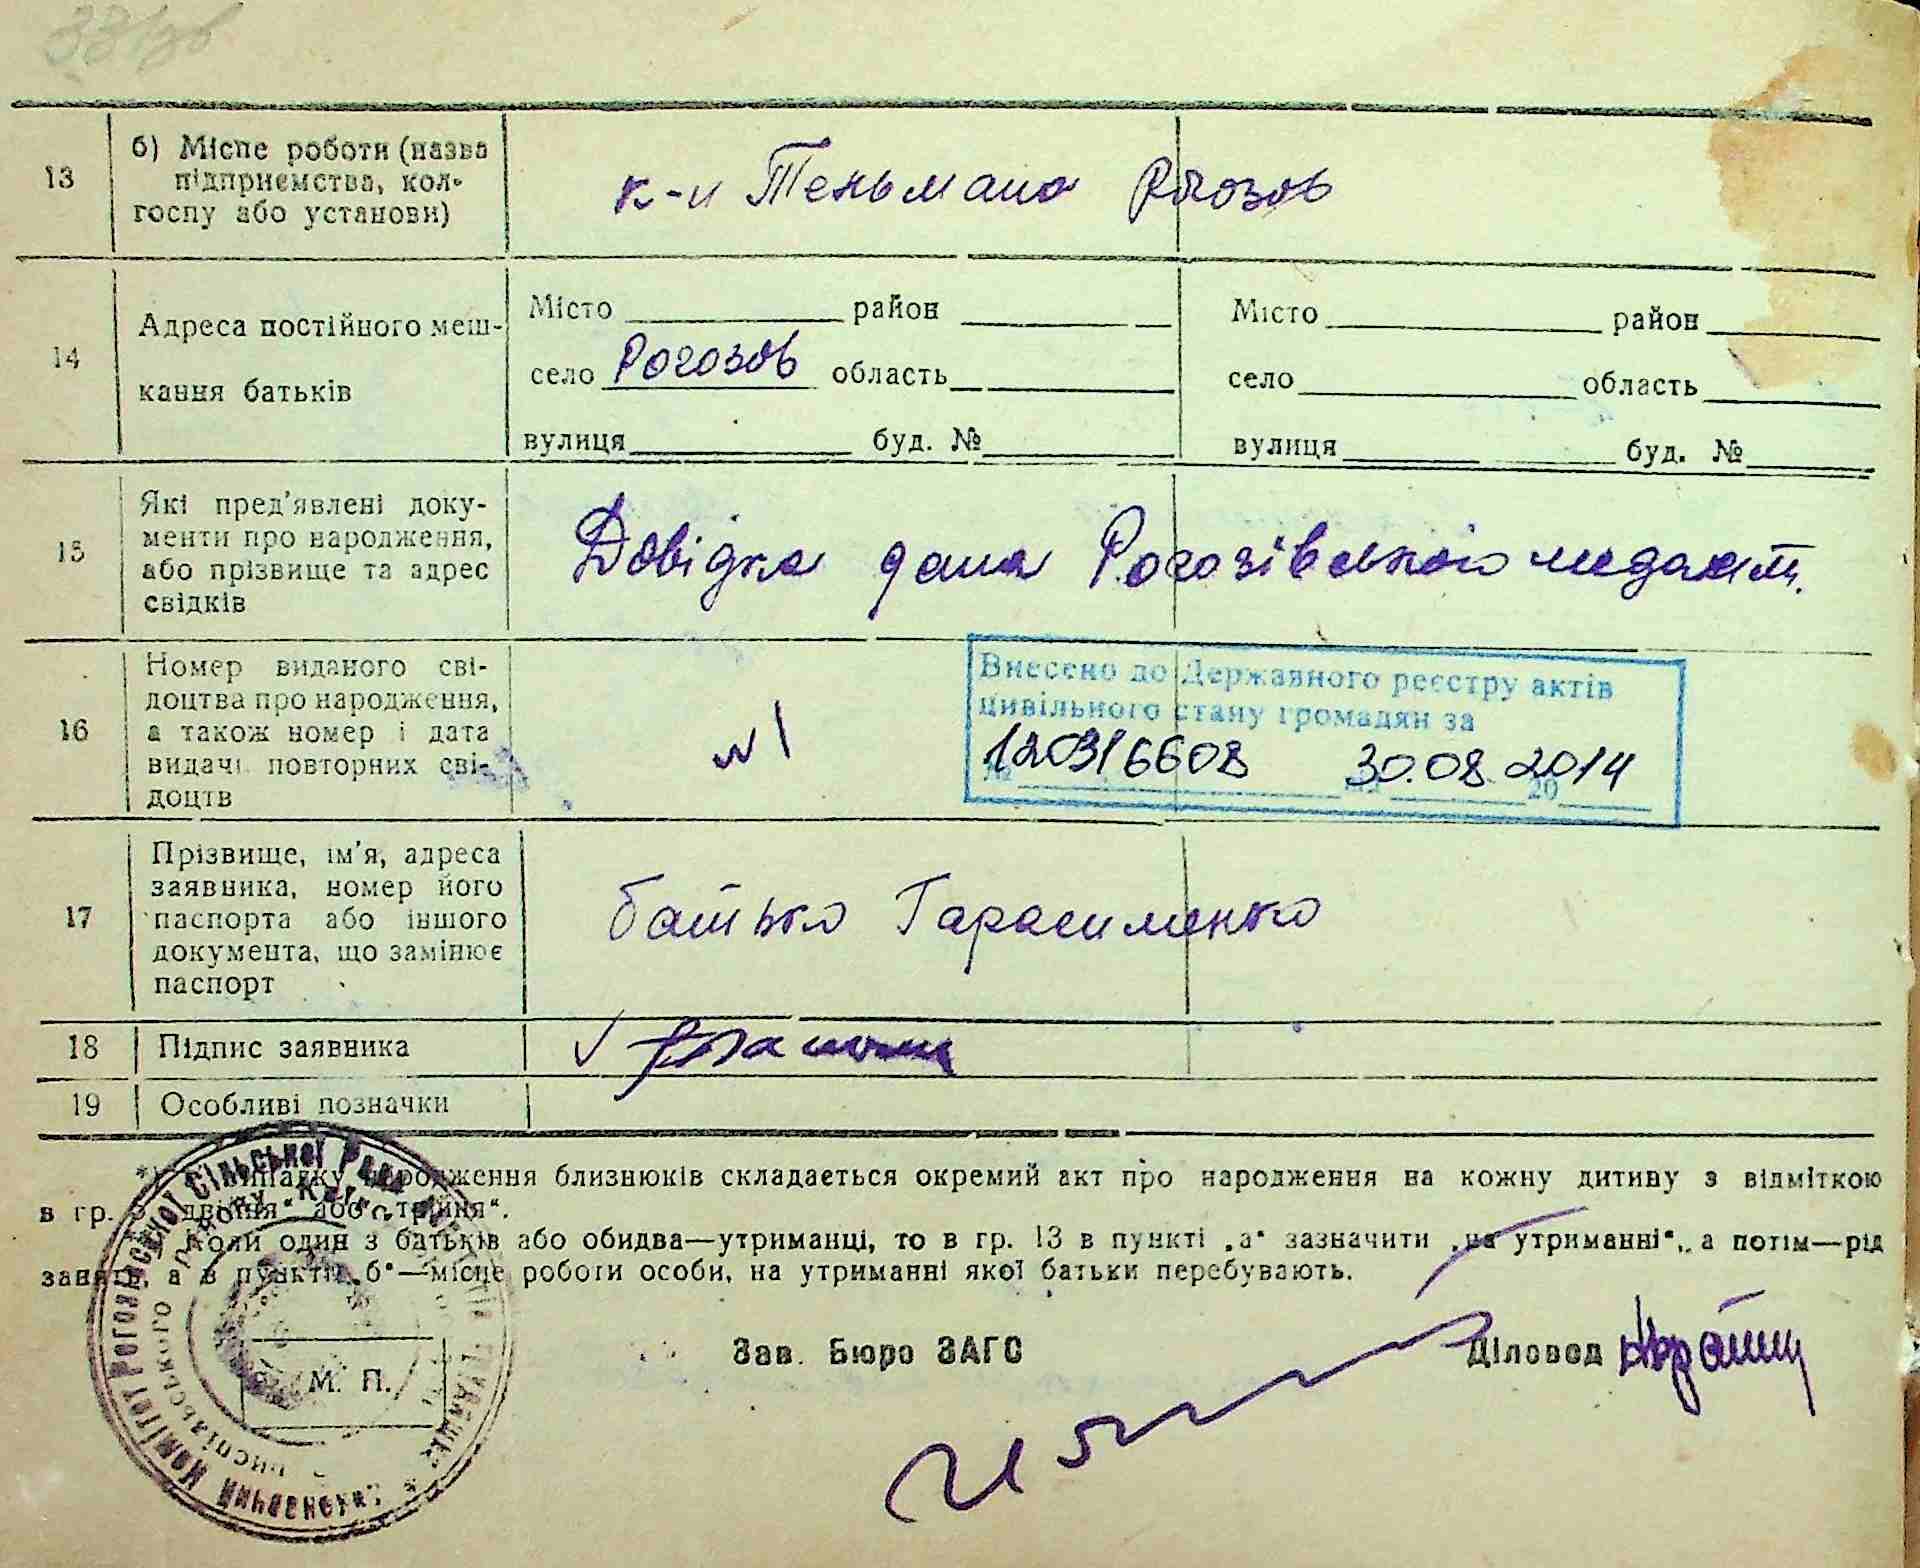 13
б) Місце роботи (назва
підприємства, кол-
госпу або установи)
к-п Тельмана Рогозов
14
Адреса постійного меш-
кання батьків
Місто район
село Рогозов область
вулиця буд. №
Місто район
село область
вулиця буд. №
15
Які пред'явлені доку-
менти про народження,
або прізвище та адрес
свідків
Довідка дана Рогозівською медамт.
16
Номер виданого сві-
доцтва про народження,
а також номер і дата
видачі повторних сві-
доцтв
№1
Внесено до Державного реєстру актів
цивільного стану громадян за
№ 120316608 30.08.2014
20
17
Прізвище, ім'я, адреса
заявника, номер його
паспорта або іншого
документа, що замінює
паспорт
батько Гарасименко
18
Підпис заявника
19
Особливі позначки
народження близнюків складається окремий акт про народження на кожну дитину з відміткою
в гр. „двійня“ або „трійня“.
Коли один з батьків або обидва—утриманці, то в гр. 13 в пункті „а“ зазначити „на утриманні“, а потім—рід
занять, а в пункті „б“—місце роботи особи, на утриманні якої батьки перебувають.
Зав. Бюро ЗАГС
Діловод
М. П.